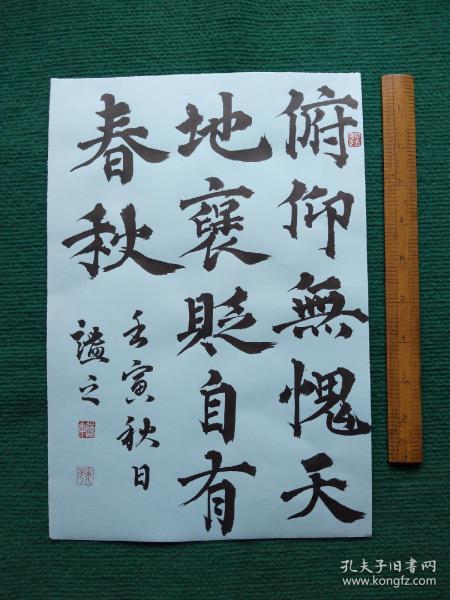 俯仰無愧天
地褒貶自有
春秋
壬寅秋日
謐之
孔夫子旧书网
www.kongfz.com